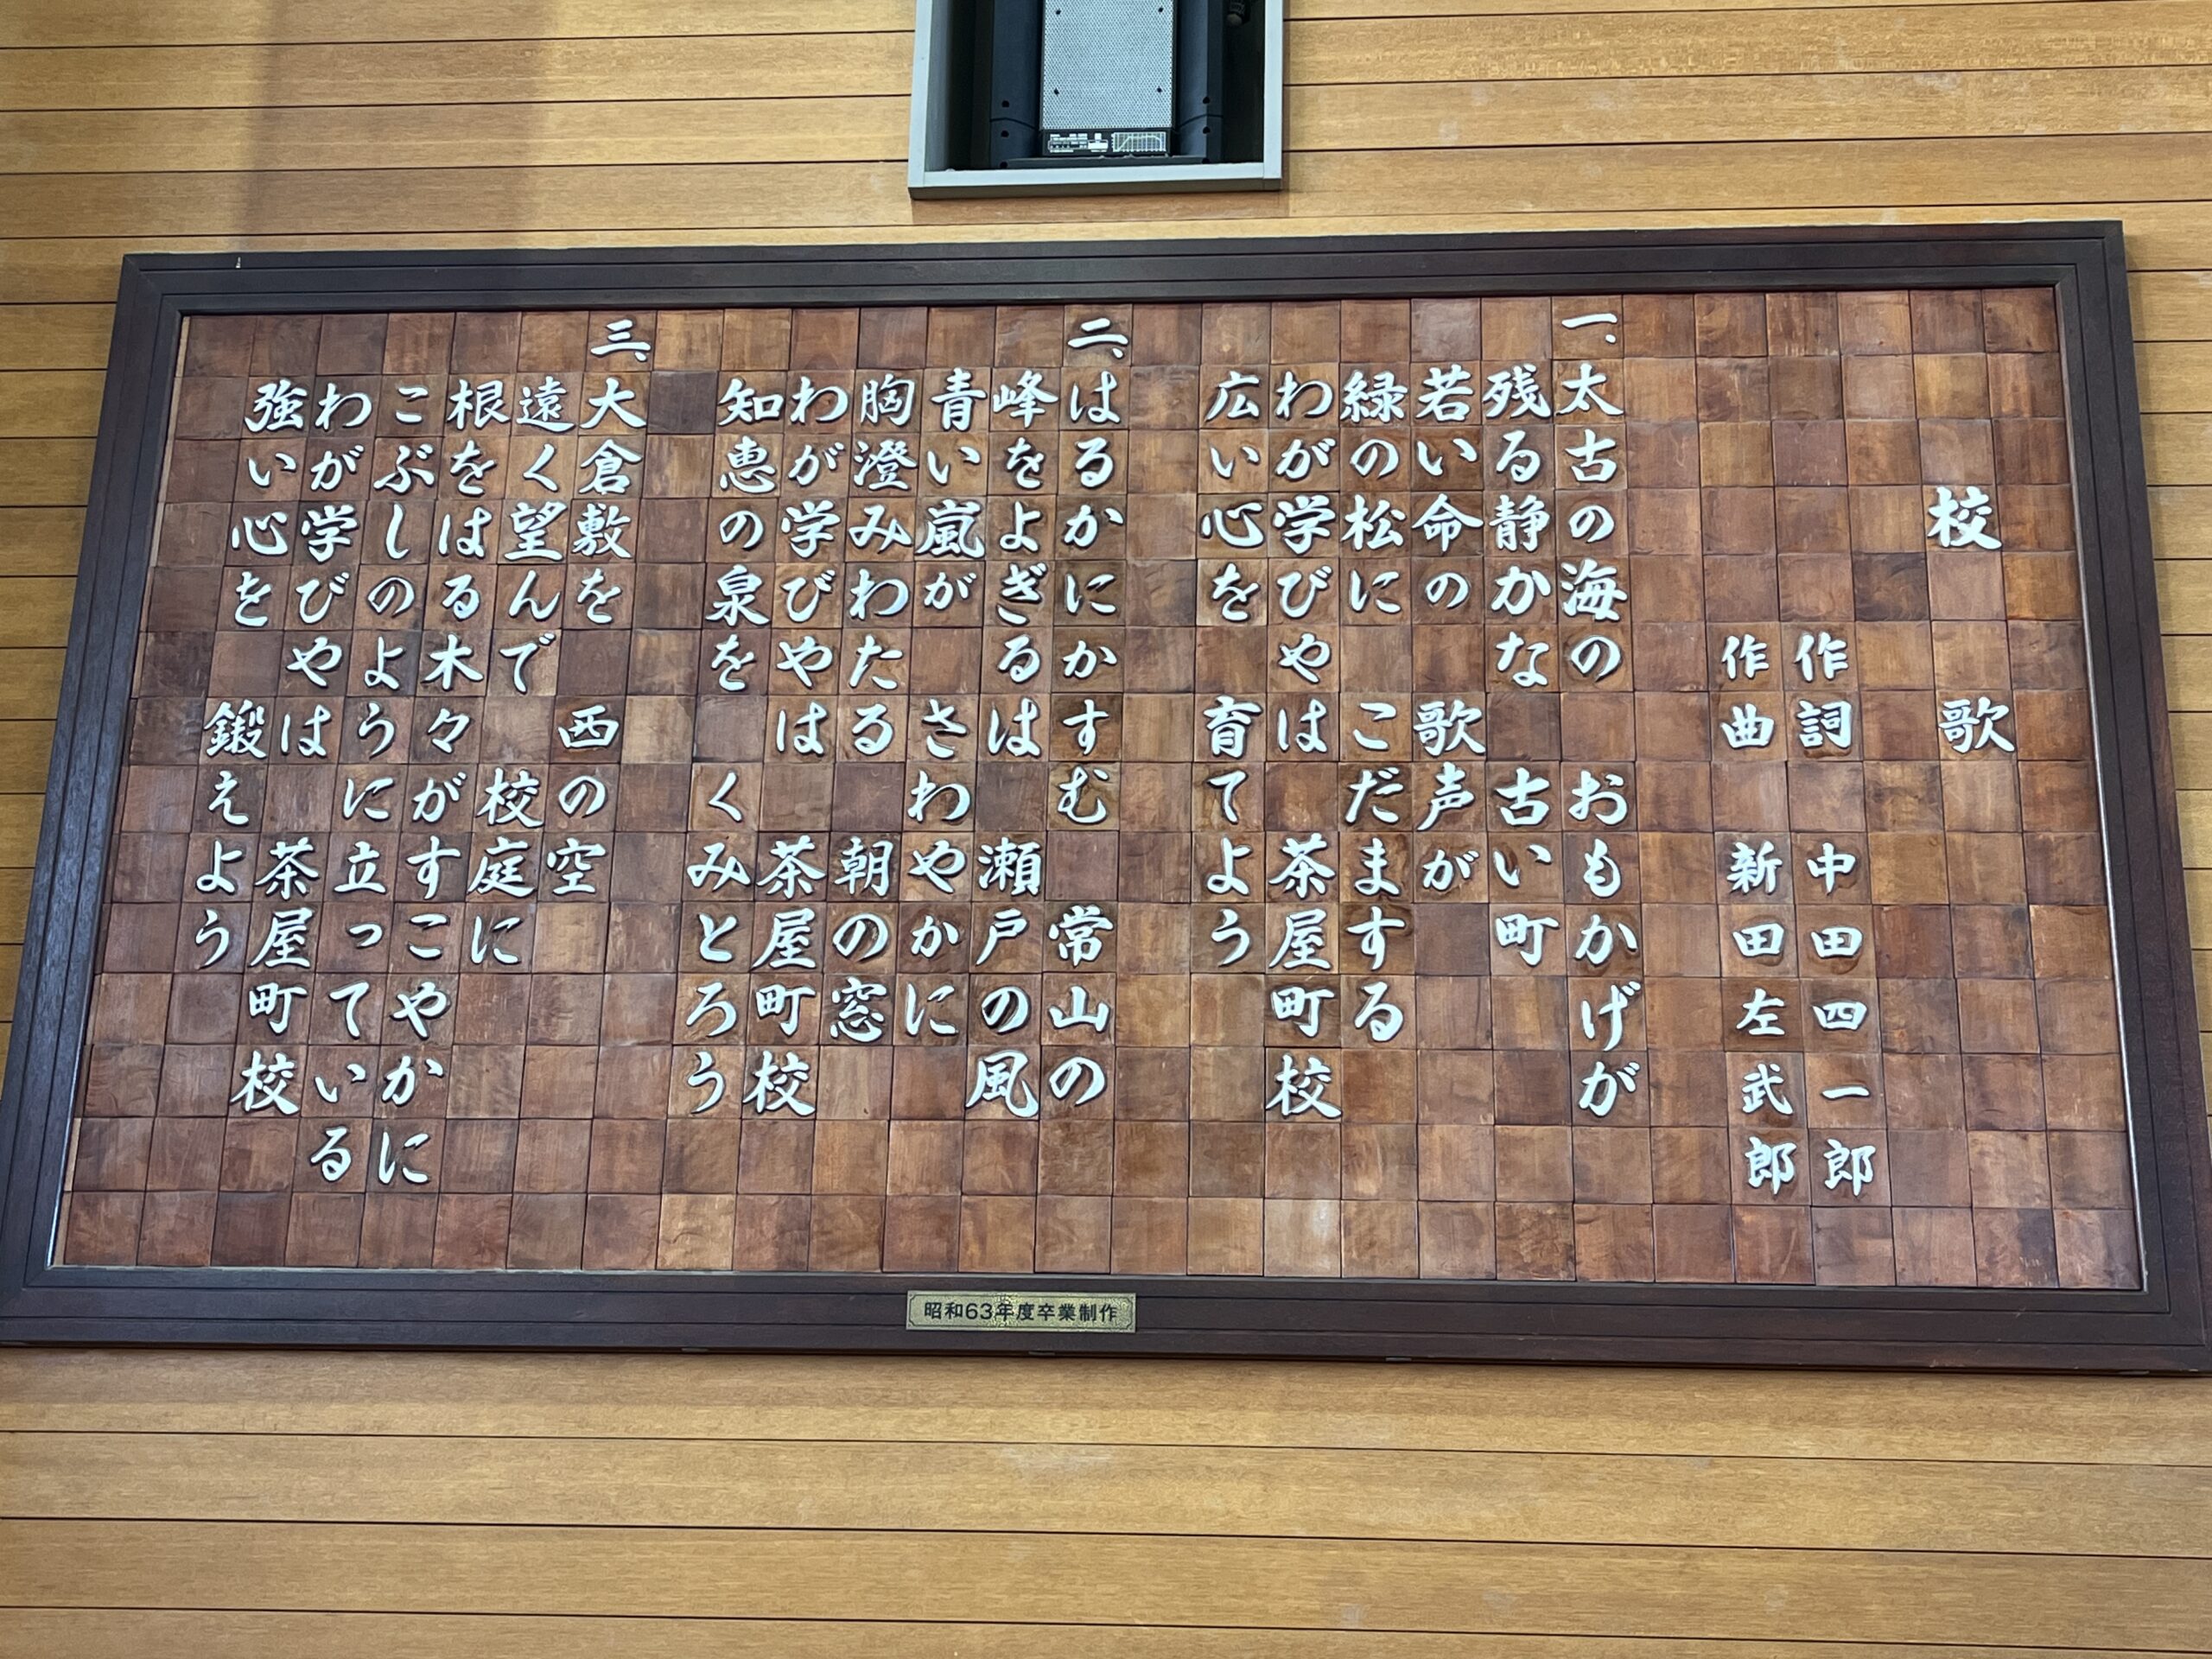 校 歌
作詞 中田四一郎
作曲 新田左武郎
一、太古の海の おもかげが
残る静かな 古い町
若い命の 歌声が
緑の松に こだまする
わが学びやは 茶屋町校
広い心を 育てよう
二、はるかにかすむ 常山の
峰をよぎるは 瀬戸の風
青い嵐が さわやかに
胸澄みわたる 朝の窓
わが学びやは 茶屋町校
知恵の泉を くみとろう
三、大倉敷を 西の空
遠く望んで 校庭に
根をはる木々が すこやかに
こぶしのように 立っている
わが学びやは 茶屋町校
強い心を 鍛えよう
昭和63年度卒業制作